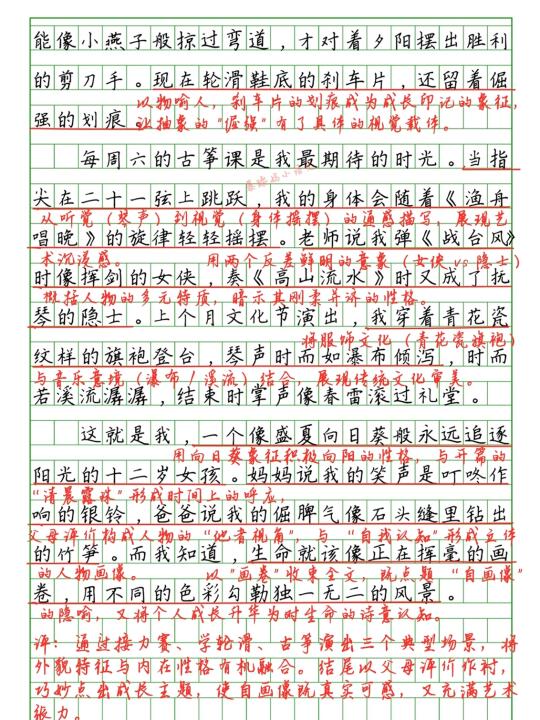 能像小燕子般掠过弯道，才对着夕阳摆出胜利
的剪刀手。现在轮滑鞋底的刹车片，还留着倔
以物喻人，刹车片的划痕成为成长印记的象征，
强的划痕。
让抽象的"倔强"有了具体的视觉载体。
每周六的古筝课是我最期待的时光。当指
尖在二十一弦上跳跃，我的身体会随着《渔舟
从听觉（琴声）到视觉（身体摇摆）的通感描写，展现艺
唱晚》的旋律轻轻摇摆。老师说我弹《战台风》
术沉浸感。 用两个反差鲜明的意象（女侠 vs 隐士）
时像挥剑的女侠，奏《高山流水》时又成了抚
概括人物的多元特质，暗示其刚柔并济的性格。
琴的隐士。上个月文化节演出，我穿着青花瓷
将服饰文化（青花瓷旗袍）
纹样的旗袍登台，琴声时而如瀑布倾泻，时而
与音乐意境（瀑布/溪流）结合，展现传统文化审美。
若溪流潺潺，结束时掌声像春雷滚过礼堂。
这就是我，一个像盛夏向日葵般永远追逐
用向日葵象征积极向阳的性格，与开篇的
阳光的十二岁女孩。妈妈说我的笑声是叮咚作
"清晨露珠"形成时间上的呼应，
响的银铃，爸爸说我的倔脾气像石头缝里钻出
父母评价构成人物的"他者视角"，与"自我认知"形成立体
的竹笋。而我知道，生命就该像正在挥毫的画
的人物画像。 以"画卷"收束全文，既点题"自画像"
卷，用不同的色彩勾勒独一无二的风景。
的隐喻，又将个人成长升华为对生命的诗意认知。
评：通过接力赛、学轮滑、古筝演出三个典型场景，将
外貌特征与内在性格有机融合。结尾以父母评价作衬，
巧妙点出成长主题，使自画像既真实可感，又充满艺术
张力。